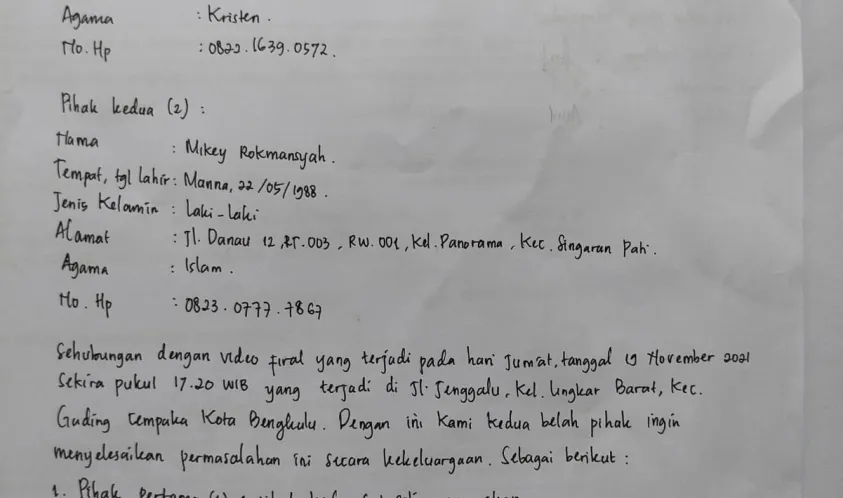 Agama : Kristen.
No. Hp : 0822.1639.0572.
Pihak kedua (2) :
Nama : Mikey Rokmansyah.
Tempat, tgl lahir : Manna, 22/05/1988.
Jenis Kelamin : Laki-Laki
Alamat : Jl. Danau 12, RT.003, RW.001, Kel. Panorama, Kec. Singaran Pati.
Agama : Islam.
No. Hp : 0823.0777.7867
Sehubungan dengan video firal yang terjadi pada hari Jum'at, tanggal 19 November 2021
Sekira pukul 17.20 WIB yang terjadi di Jl. Jenggalu, Kel. Lingkar Barat, Kec.
Gading Cempaka Kota Bengkulu. Dengan ini Kami kedua belah pihak ingin
menyelesaikan permasalahan ini secara kekeluargaan. Sebagai berikut :
1. Pihak